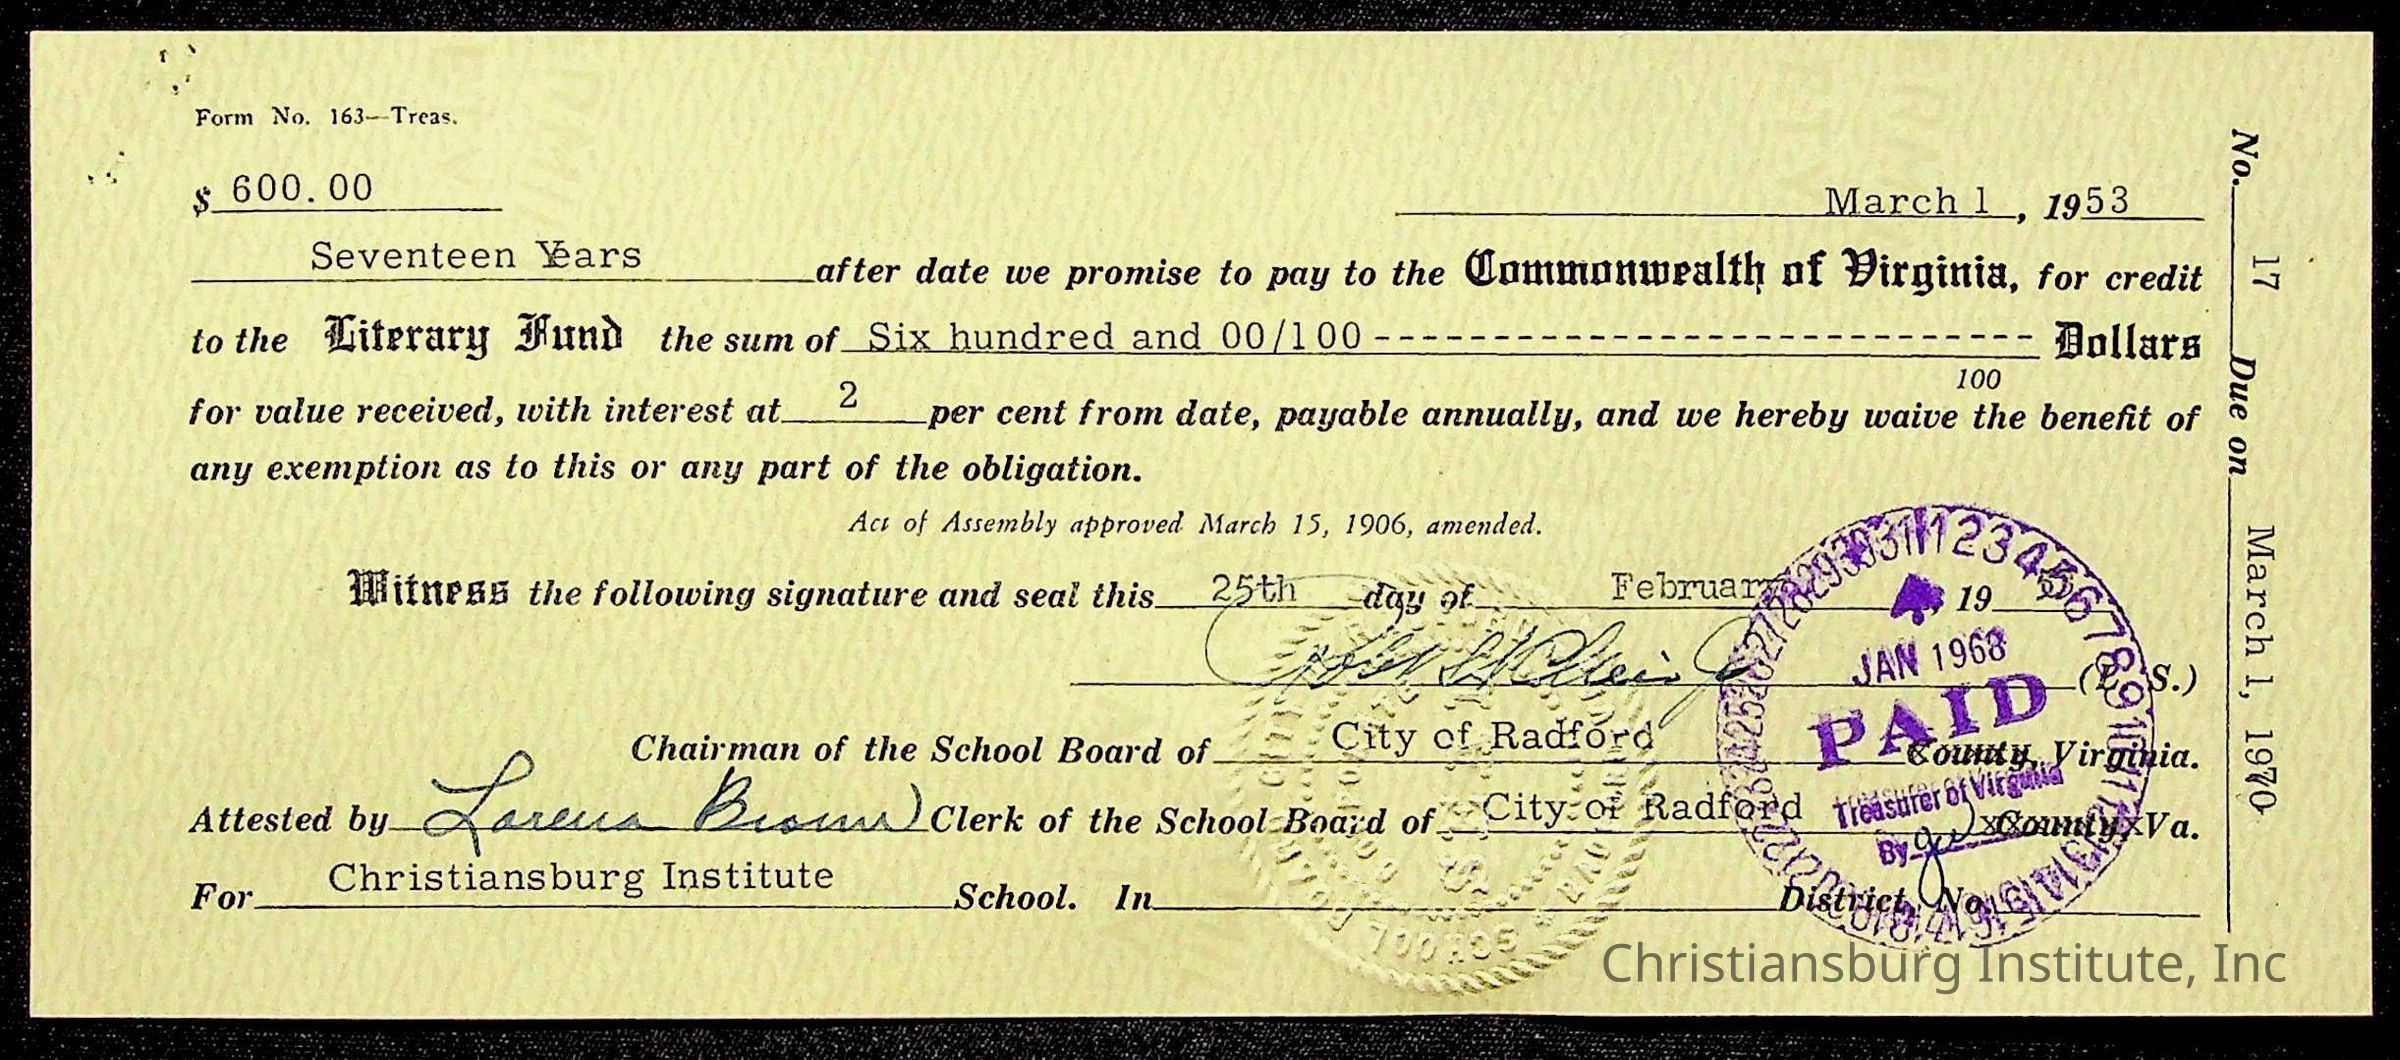 Form No. 163—Treas.
$ 600.00
March 1, 1953
Seventeen Years after date we promise to pay to the Commonwealth of Virginia, for credit
to the Literary Fund the sum of Six hundred and 00/100 --------------------------- Dollars
for value received, with interest at 2 per cent from date, payable annually, and we hereby waive the benefit of
100
any exemption as to this or any part of the obligation.
Act of Assembly approved March 15, 1906, amended.
Witness the following signature and seal this 25th day of February, 19 53
(L. S.)
Chairman of the School Board of City of Radford County, Virginia.
Attested by Lorena Brown Clerk of the School Board of City of Radford County, Va.
For Christiansburg Institute School. In District, No.
No. 17 Due on March 1, 1970
JAN 1968
PAID
Treasurer of Virginia
By
Christiansburg Institute, Inc